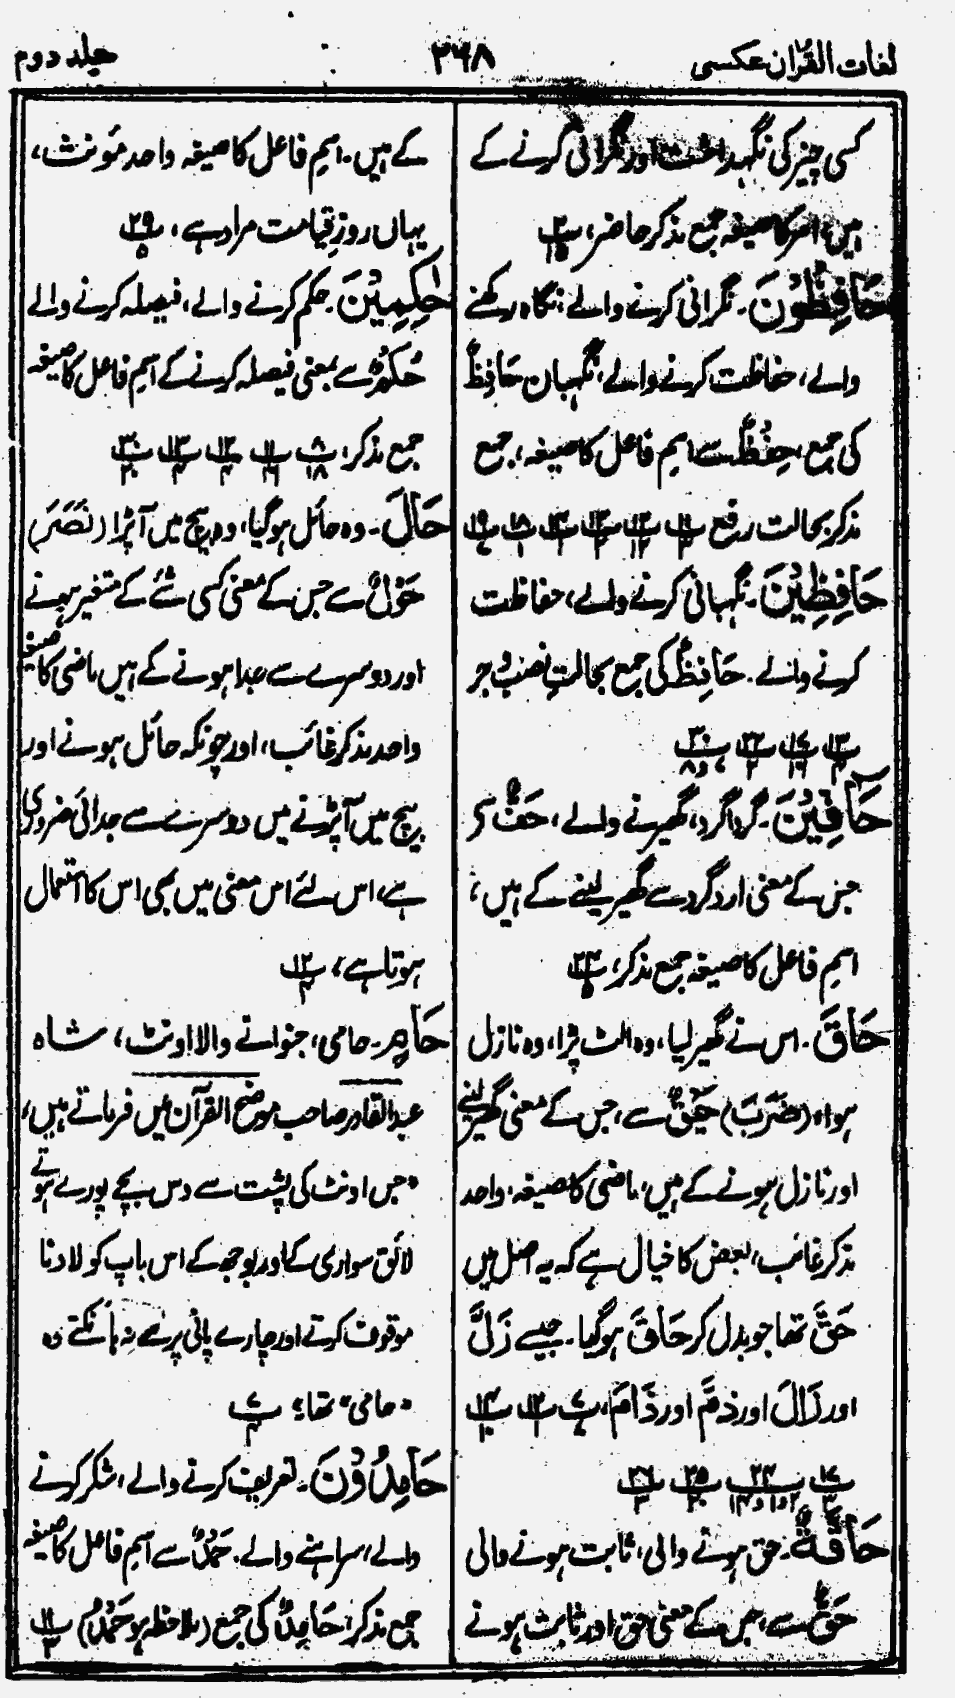 لغات القرآن عکسی
۲۶۸
جلد دوم
کسی چیز کی نگہداشت اور نگرانی کرنے کے
ہیں، امر کا صیغہ جمع مذکر حاضر،
حَافِظُوْنَ۔ نگرانی کرنے والے، نگاہ رکھنے
والے، حفاظت کرنے والے، نگہبان حَافِظٌ
کی جمع، حِفْظٌ سے اسمِ فاعل کا صیغہ، جمع
مذکر بحالت رفع
حَافِظِيْنَ۔ نگہبانی کرنے والے، حفاظت
کرنے والے۔ حَافِظٌ کی جمع بحالتِ نصب و جر
حَآفِّيْنَ۔ گردا گرد، گھیرنے والے، حَفٌّ سے
جس کے معنی ارد گرد سے گھیر لینے کے ہیں،
اسمِ فاعل کا صیغہ جمع مذکر،
حَاقَ۔ اس نے گھیر لیا، وہ الٹ پڑا، وہ نازل
ہوا، (ضَرَبَ) حَيْقٌ سے، جس کے معنی گھیر لینے
اور نازل ہونے کے ہیں، ماضی کا صیغہ، واحد
مذکر غائب، بعض کا خیال ہے کہ یہ اصل میں
حَقَّ تھا جو بدل کر حَاقَ ہو گیا۔ جیسے زَلَّ
اور زَالَ اور ذَمَّ اور ذَامَ،
حَآقَّةُ۔ حق ہونے والی، ثابت ہونے والی
حَقٌّ سے، جس کے معنی حق اور ثابت ہونے
کے ہیں۔ اسمِ فاعل کا صیغہ واحد مؤنث،
یہاں روزِ قیامت مراد ہے،
حٰكِمِيْنَ۔ حکم کرنے والے، فیصلہ کرنے والے
حُكْمٌ سے بمعنی فیصلہ کرنے کے اسمِ فاعل کا صیغہ
جمع مذکر،
حَالَ۔ وہ حائل ہو گیا، وہ بیچ میں آ پڑا (نَصَرَ)
حَوْلٌ سے جس کے معنی کسی شئے کے متغیر ہونے
اور دوسرے سے جدا ہونے کے ہیں ماضی کا صیغہ
واحد مذکر غائب، اور چونکہ حائل ہونے اور
بیچ میں آ پڑنے میں دوسرے سے جدائی ضروری
ہے، اس لئے اس معنی میں بھی اس کا استعمال
ہوتا ہے،
حَامٍ۔ حامی، جنوانے والا اونٹ، شاہ
عبدالقادر صاحب موضح القرآن میں فرماتے ہیں،
"جس اونٹ کی پشت سے دس بچے پورے ہوتے
لائق سواری کے اور بوجھ کے اس باپ کو لادنا
موقوف کرتے اور چارے پانی پر سے نہ ہانکتے وہ
"حامی" تھا،
حَامِدُوْنَ۔ تعریف کرنے والے، شکر کرنے
والے، سراہنے والے۔ حَمْدٌ سے اسمِ فاعل کا صیغہ
جمع مذکر، حَامِدٌ کی جمع (ملاحظہ ہو حَمْدٌ)